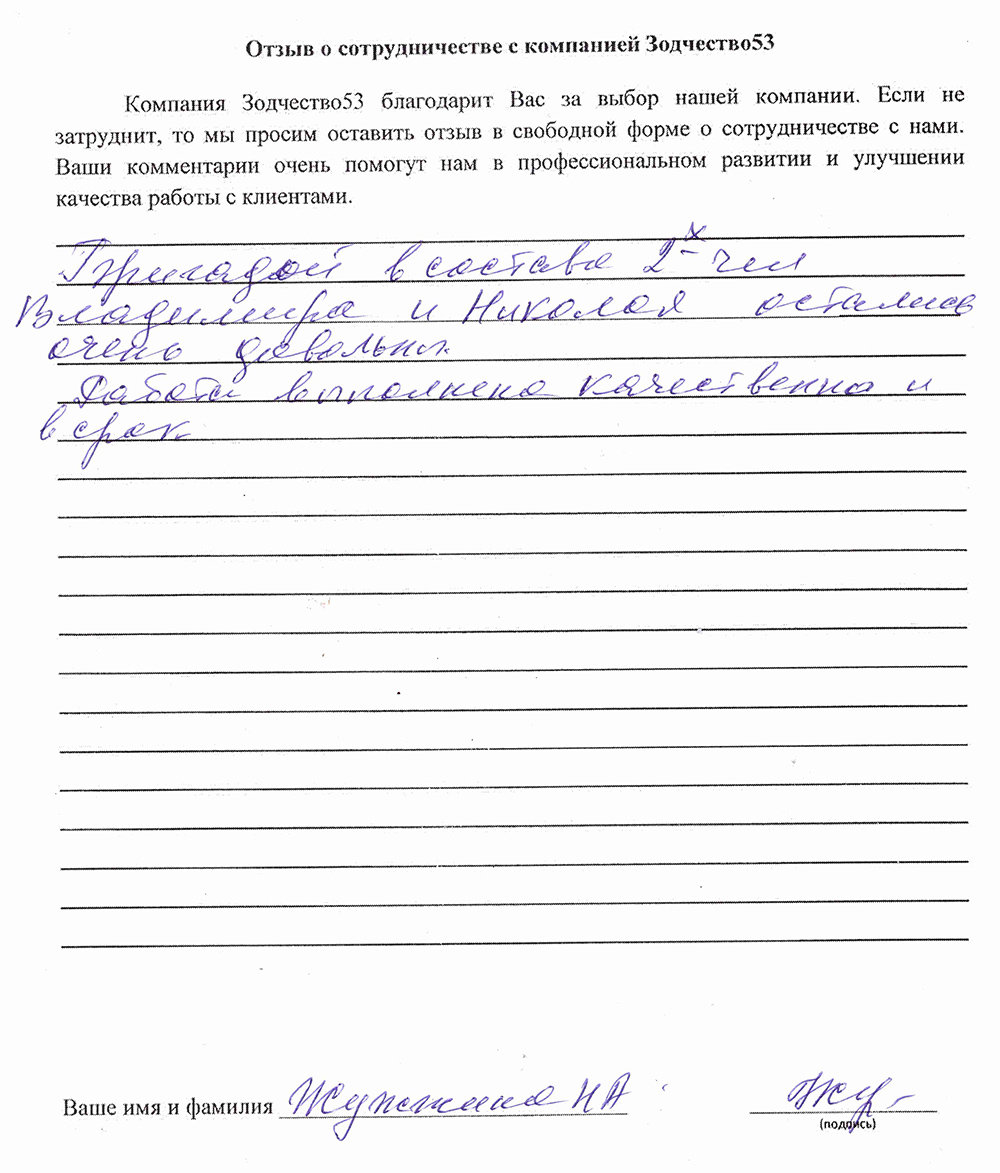 Отзыв о сотрудничестве с компанией Зодчество53
Компания Зодчество53 благодарит Вас за выбор нашей компании. Если не
затруднит, то мы просим оставить отзыв в свободной форме о сотрудничестве с нами.
Ваши комментарии очень помогут нам в профессиональном развитии и улучшении
качества работы с клиентами.
Бригадой в состава 2-х чел
Владимира и Николая остались
очень довольны.
Работа выполнена качественно и
в срок
Ваше имя и фамилия НА
(подпись)